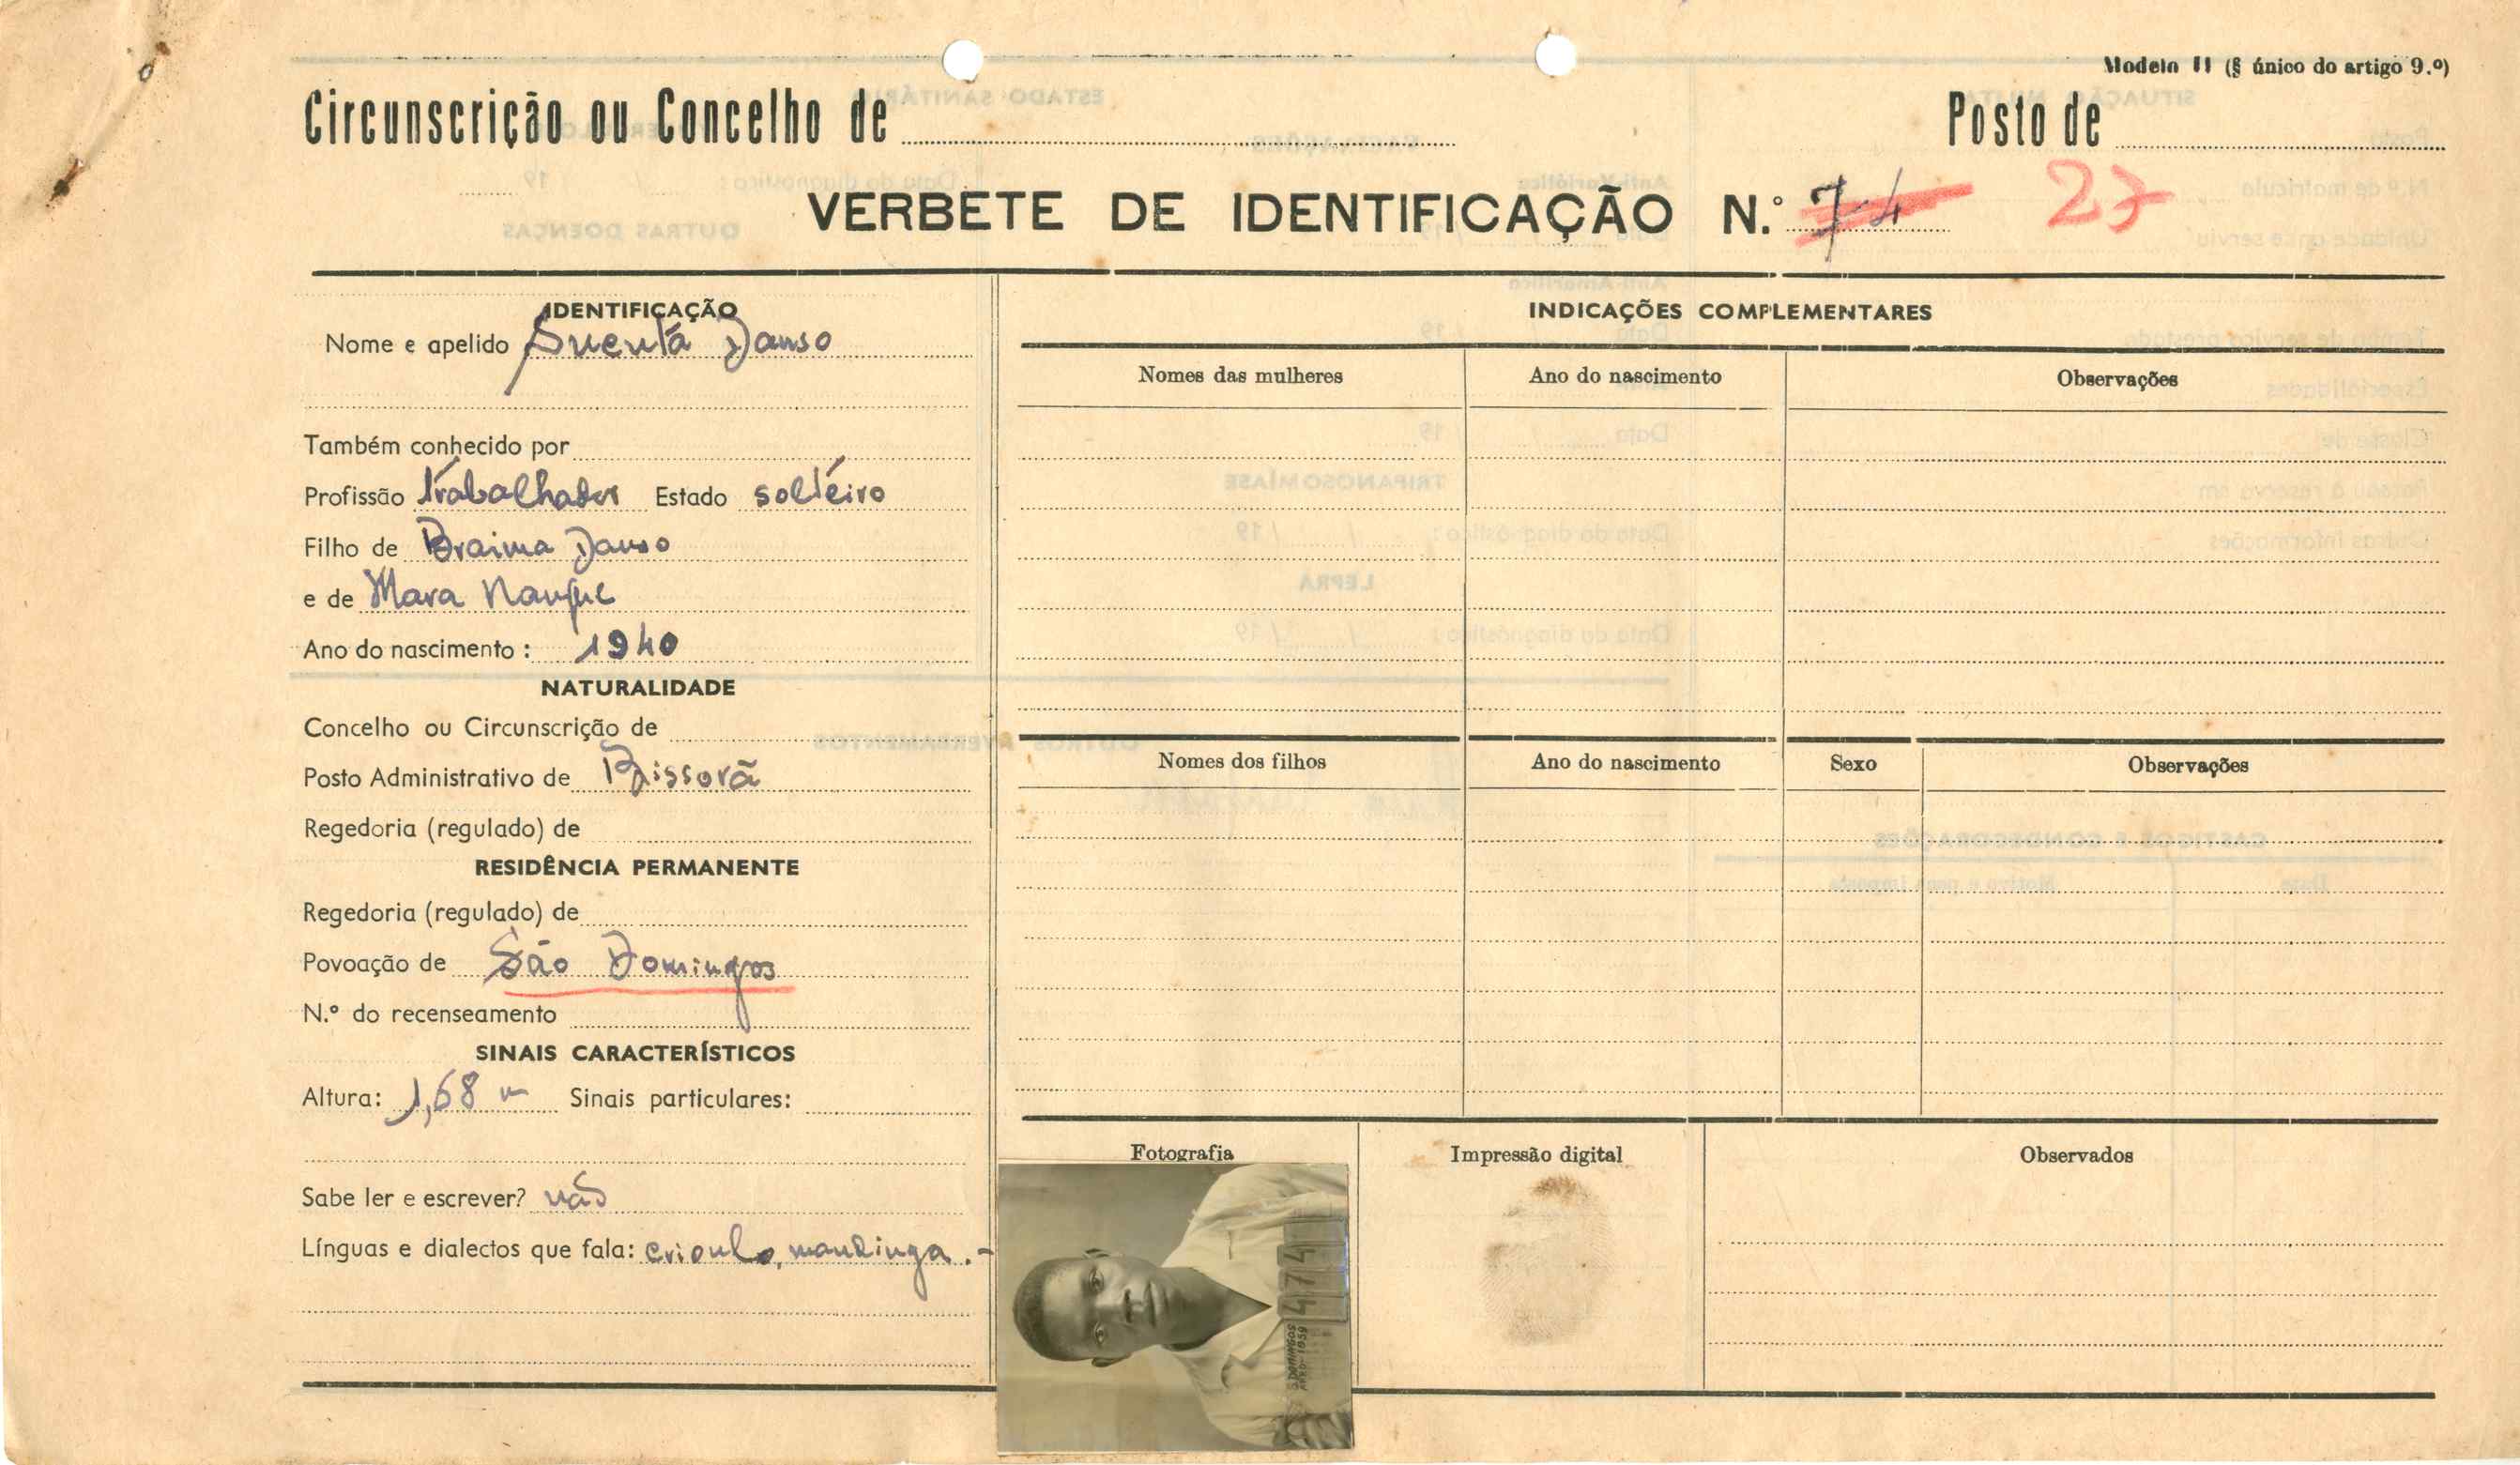 Modelo II (§ único do artigo 9.º)
Circunscrição ou Concelho de
Posto de
VERBETE DE IDENTIFICAÇÃO N.º 74 27
IDENTIFICAÇÃO
Nome e apelido Suentá Danso
Também conhecido por
Profissão Trabalhador Estado solteiro
Filho de Braima Danso
e de Mara Nanque
Ano do nascimento: 1940
NATURALIDADE
Concelho ou Circunscrição de
Posto Administrativo de Bissorã
Regedoria (regulado) de
RESIDÊNCIA PERMANENTE
Regedoria (regulado) de
Povoação de São Domingos
N.º do recenseamento
SINAIS CARACTERÍSTICOS
Altura: 1,68 m Sinais particulares:
Sabe ler e escrever? não
Línguas e dialectos que fala: crioulo, mandinga.-
INDICAÇÕES COMPLEMENTARES
Nomes das mulheres Ano do nascimento Observações
Nomes dos filhos Ano do nascimento Sexo Observações
Fotografia Impressão digital Observados
4474
S. DOMINGOS
1959